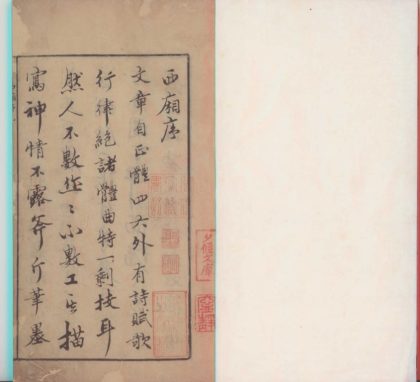 西廂序
文章自正體四六外有詩賦歌
行律絕諸體曲特一剩技耳
然人不數作〻不數工其描
寫神情不露斧斤筆墨